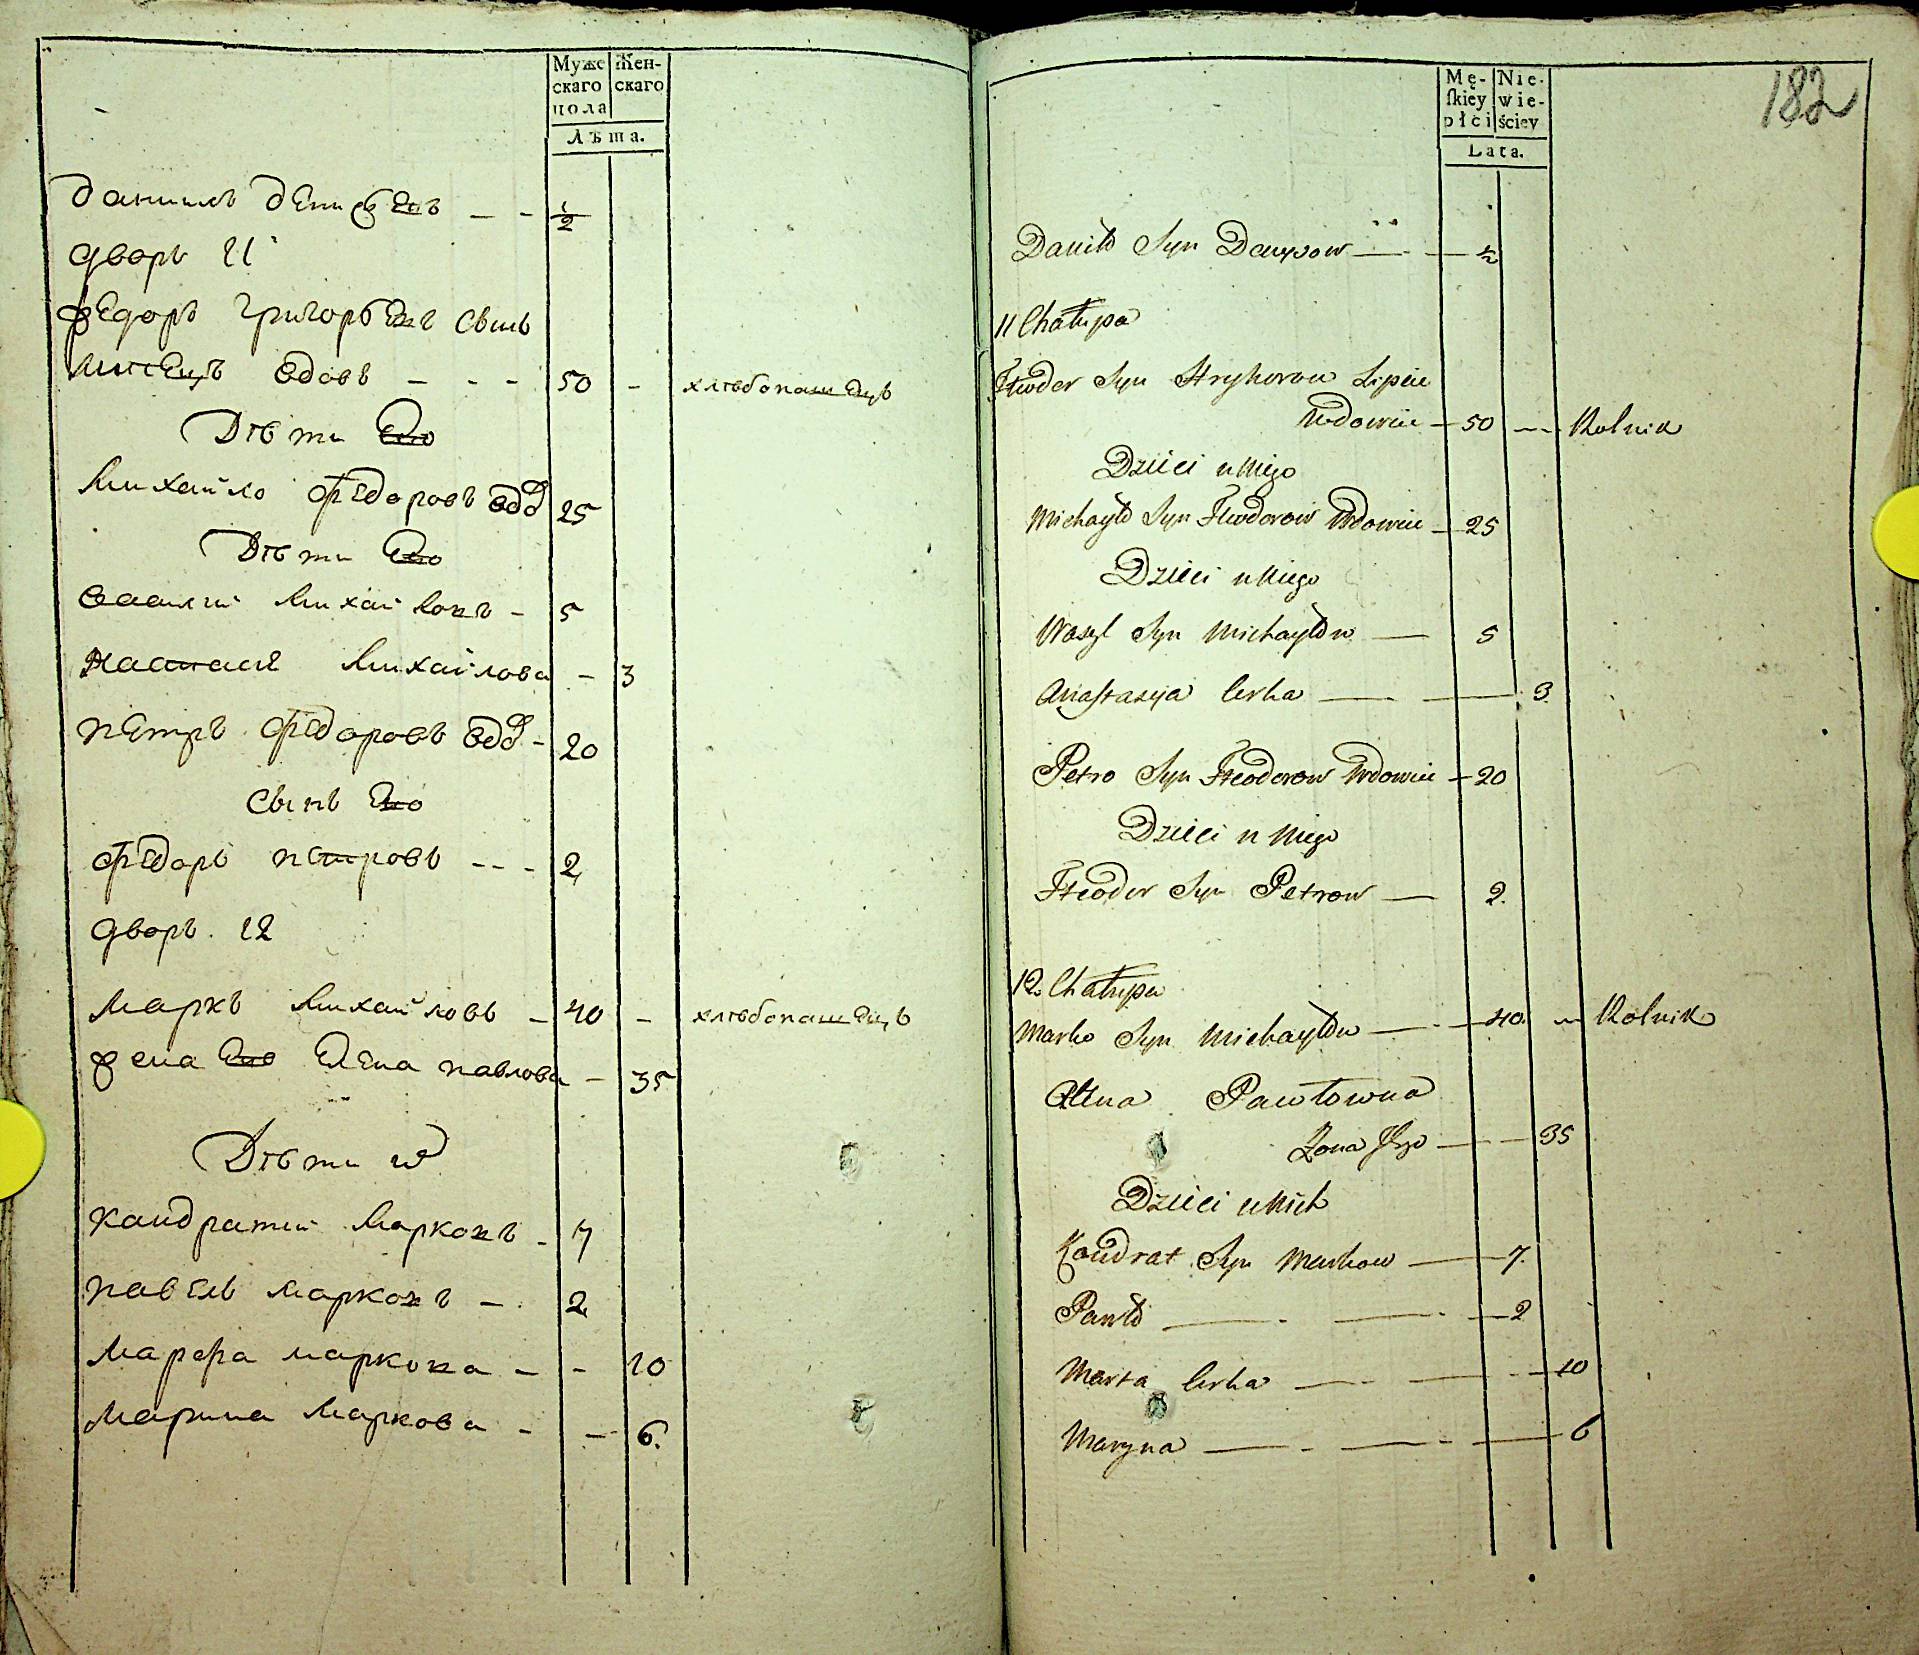 Муже
скаго
пола
Жен-
скаго
Лѣта.
Данилъ Денисовъ — - ½
дворъ 11
федоръ григорьевъ сынъ
вдовъ - - - 50 - хлѣбопашецъ
Дѣти Ево
Михайло федоровъ вдо 25
Дѣти Ево
василий Михайловъ - 5
Настасия Михайлова - 3
петръ федоровъ вдо - 20
Сынъ Ево
федоръ петровъ - - - 2
дворъ. 12
Маркъ Михайловъ - 40 - хлѣбопашецъ
жена Ево Елена павлова - 35
Дѣти их
Кандратий Марковъ - 7
павелъ марковъ - 2
Марфа маркова - - 10
Марина Маркова - - 6.
182
Mę-
skiey
płci
Nie-
wie-
ściey
Lata.
Daniło Syn Denysow — — ½
11 Chałupa
Fteoder Syn Hryhorow
Wdowiec — 50 — Rolnik
Dzieci u Niego
Michayło Syn Fteodorow Wdowiec — 25
Dzieci u Niego
Wasyl Syn Michayłow — 5
Anastazya Corka — — 3.
Petro Syn Fteodorow Wdowiec — 20
Dzieci u Niego
Fteoder Syn Petrow — 2.
12. Chałupa
Marko Syn Michayłow — — 40. — Rolnik
Ołena Pawłowna
Żona Jego — — 35
Dzieci u Nich
Kondrat Syn Markow — 7.
Pawło — — — 2
Marta Corka — — - 10
Maryna — - — - — 6